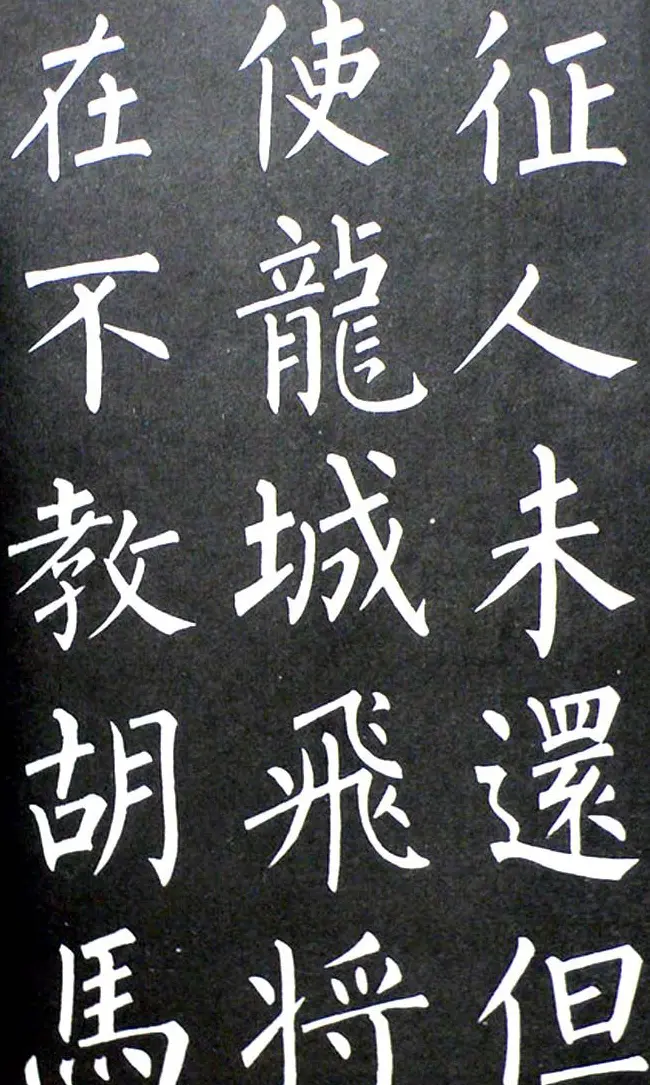 征人未還但
使龍城飛將
在不教胡馬